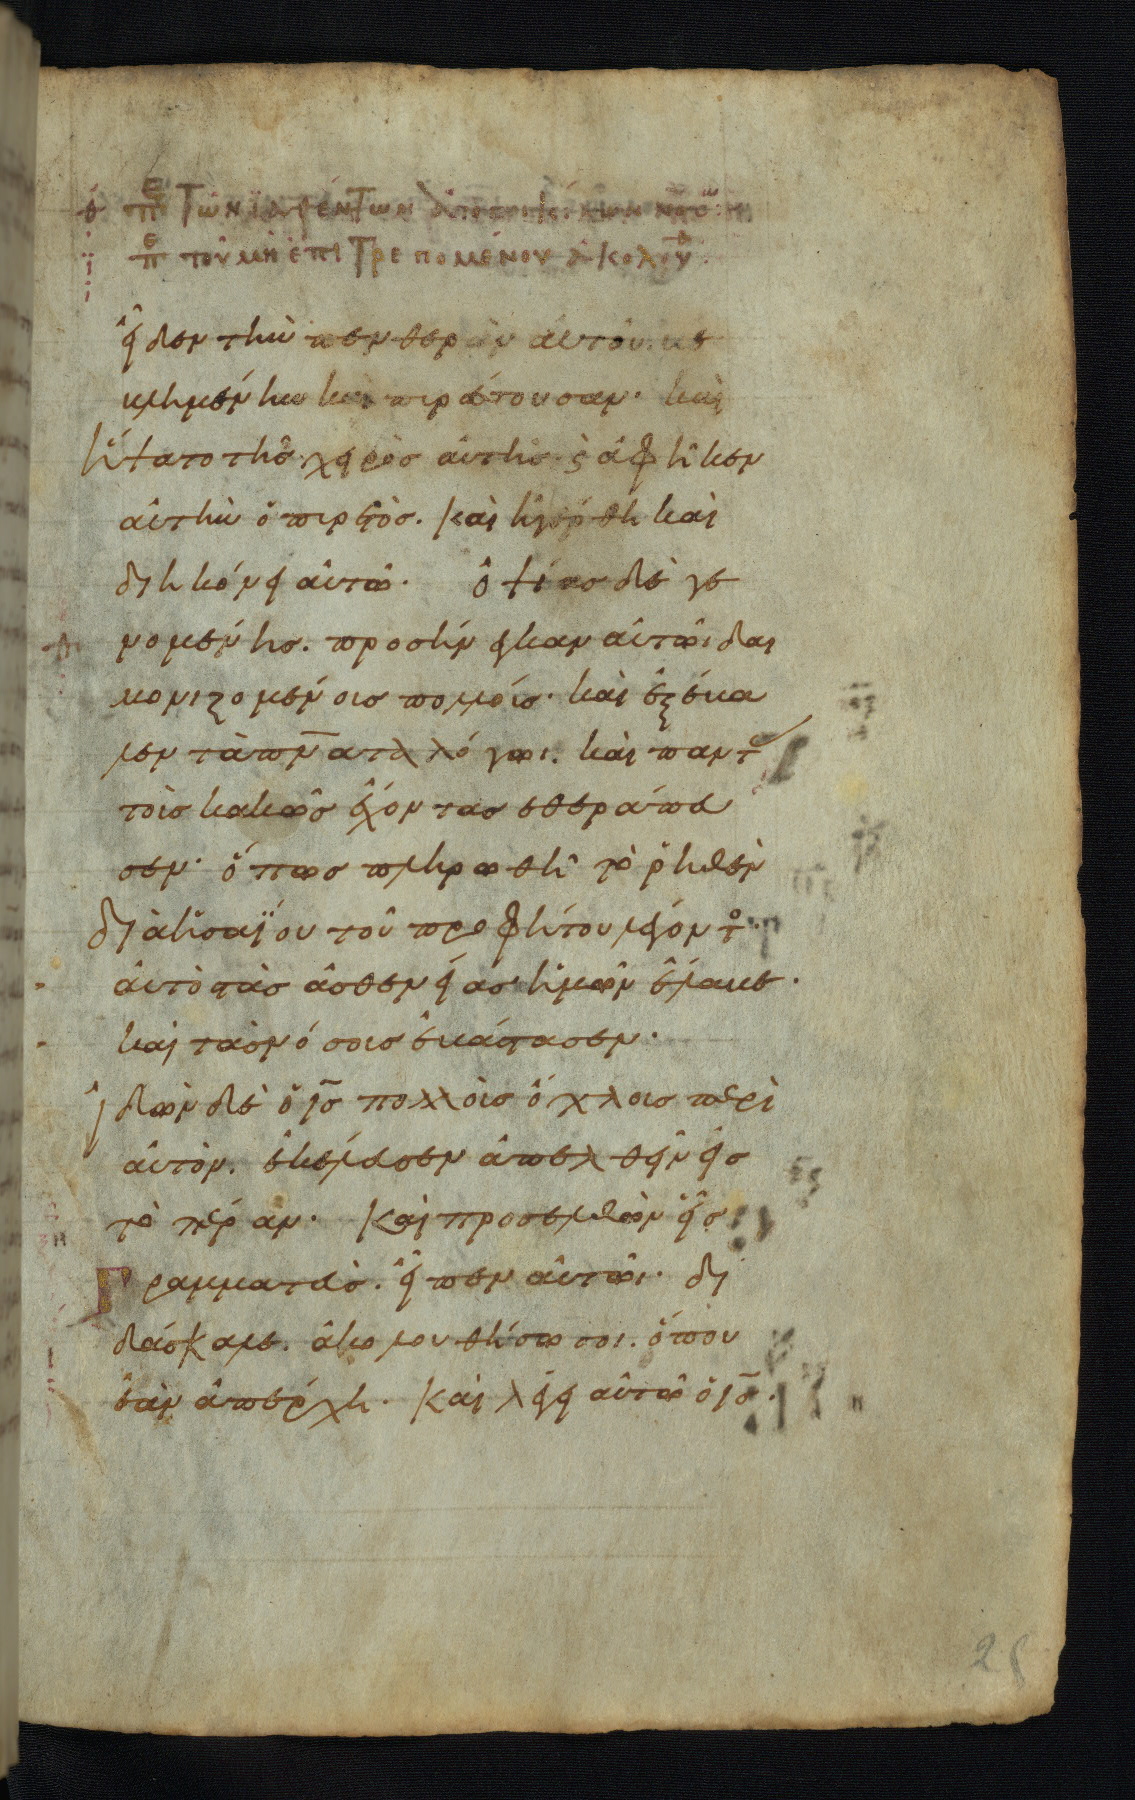 θ πε των ιαθέντων ἀπὸ ποικίλων νόσων
ι πε τοῦ μὴ ἐπιτρεπομένου ἀκολου
εἶδεν τὴν πενθερὰν αὐτοῦ βε
βλημένην καὶ πυρέσσουσαν· καὶ
ἥψατο τῆς χειρὸς αὐτῆς· ϛ ἀφῆκεν
αὐτὴν ὁ πυρετὸς. καὶ ἠγέρθη καὶ
διηκόνει αὐτῶ· ὀψίας δὲ γε
νομένης. προσήνεγκαν αὐτῶι δαι
μονιζομένους πολλούς· καὶ ἐξέβα
λεν τὰ πν̅ατα λόγωι. καὶ παντ
τοὺς κακῶς ἔχοντας ἐθεράπευ
σεν· ὅπως πληρωθῆ τὸ ῥηθὲν
διὰ ἠσαΐου τοῦ προφήτου λέγοντο
αὐτὸς τὰς ἀσθενείας ἡμῶν ἔλαβε·
καὶ τὰς νόσους ἐβάστασεν·
ἰδὼν δὲ ὁ ι̅ς πολλοὺς ὄχλους περὶ
αὐτὸν. ἐκέλευσεν ἀπελθεῖν εἰς
τὸ πέραν· Καὶ προσελθὼν εἷς
Γραμματεὺς. εἶπεν αὐτῶι· δι
δάσκαλε. ἀκολουθήσω σοι. ὅπου
ἐὰν ἀπέρχη· Καὶ λέγει αὐτῶ ὁ ι̅ς·